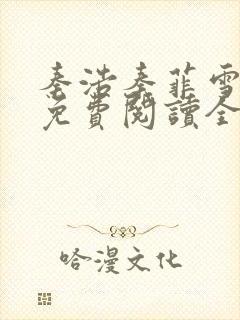 秦浩秦菲雪
免費閱讀全
哈漫文化